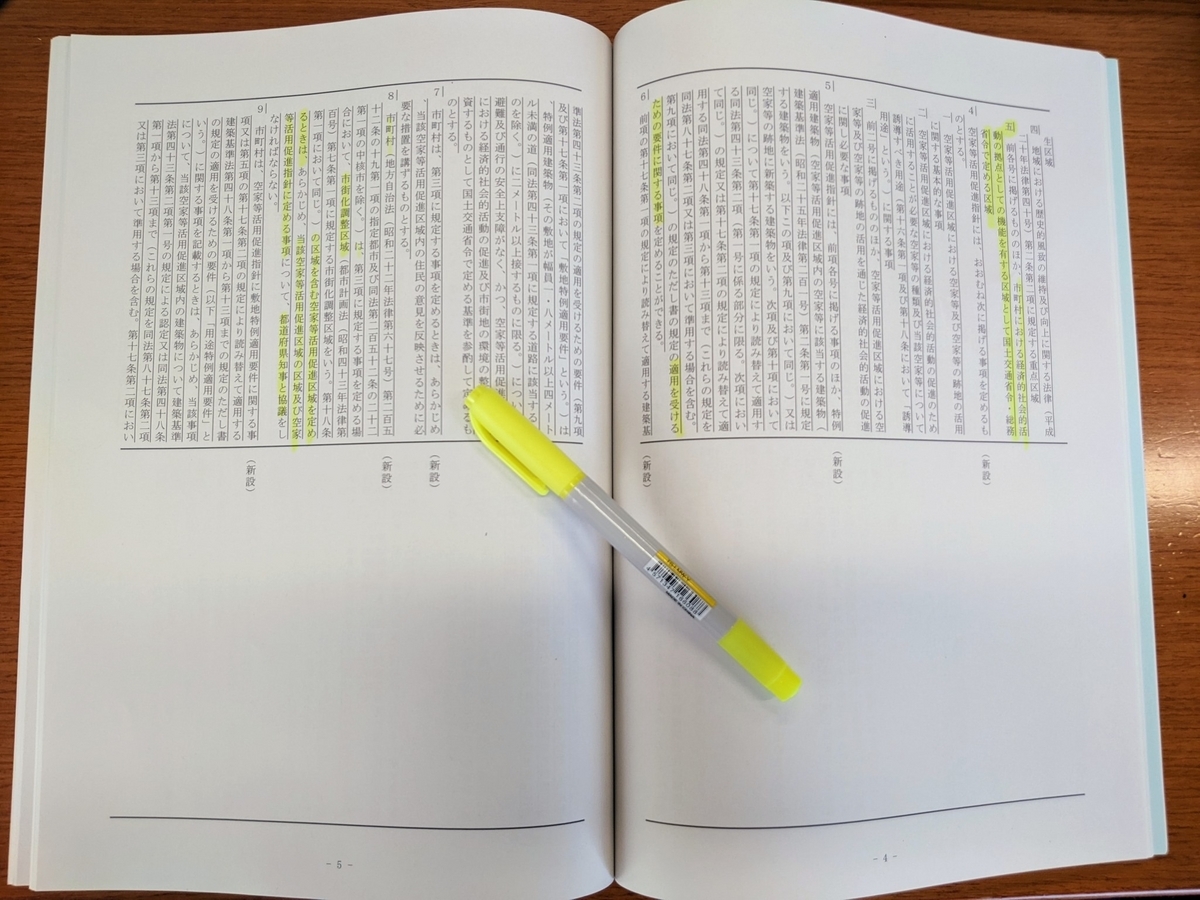 生区域
四　地域における歴史的風致の維持及び向上に関する法律（平成
二十年法律第四十号）第二条第二項に規定する重点区域
五　前各号に掲げるもののほか、市町村における経済的社会的活
動の拠点としての機能を有する区域として国土交通省令・総務
省令で定める区域
4　空家等活用促進指針には、おおむね次に掲げる事項を定めるも
のとする。
一　空家等活用促進区域における空家等及び空家等の跡地の活用
に関する基本的な事項
二　空家等活用促進区域における経済的社会的活動の促進のため
に活用することが必要な空家等の種類及び当該空家等について
誘導すべき用途（第十六条第一項及び第十八条において「誘導
用途」という。）に関する事項
三　前二号に掲げるもののほか、空家等活用促進区域における空
家等及び空家等の跡地の活用を通じた経済的社会的活動の促進
に関し必要な事項
5　空家等活用促進指針には、前項各号に掲げる事項のほか、特例
適用建築物（空家等活用促進区域内の空家等に該当する建築物（
建築基準法（昭和二十五年法律第二百一号）第二条第一号に規定
する建築物をいう。以下この項及び第九項において同じ。）又は
空家等の跡地に新築する建築物をいう。次項及び第十項において
同じ。）について第十七条第一項の規定により読み替えて適用す
る同法第四十三条第二項（第一号に係る部分に限る。次項におい
て同じ。）の規定又は第十七条第二項の規定により読み替えて適
用する同法第四十八条第一項から第十三項まで（これらの規定を
同法第八十七条第二項又は第三項において準用する場合を含む。
第九項において同じ。）の規定のただし書の規定の適用を受ける
ための要件に関する事項を定めることができる。
6　前項の第十七条第一項の規定により読み替えて適用する建築基
（新設）
（新設）
（新設）
- 4 -
準法第四十三条第二項の規定の適用を受けるための要件（第九項
及び第十七条第一項において「敷地特例適用要件」という。）は
、特例適用建築物（その敷地が幅員一・八メートル以上四メート
ル未満の道（同法第四十三条第一項に規定する道路に該当するも
のを除く。）に二メートル以上接するものに限る。）について、
避難及び通行の安全上支障がなく、かつ、空家等活用促
における経済的社会的活動の促進及び市街地の環境の整
資するものとして国土交通省令で定める基準を参酌して
のとする。
7　市町村は、第三項に規定する事項を定めるときは、あらかじめ
、当該空家等活用促進区域内の住民の意見を反映させるために必
要な措置を講ずるものとする。
8　市町村（地方自治法（昭和二十二年法律第六十七号）第二百五
十二条の十九第一項の指定都市及び同法第二百五十二条の二十二
第一項の中核市を除く。）は、第三項に規定する事項を定める場
合において、市街化調整区域（都市計画法（昭和四十三年法律第
百号）第七条第一項に規定する市街化調整区域をいう。第十八条
第二項において同じ。）の区域を含む空家等活用促進区域を定め
るときは、あらかじめ、当該空家等活用促進区域の区域及び空家
等活用促進指針に定める事項について、都道府県知事と協議をし
なければならない。
9　市町村は、空家等活用促進指針に敷地特例適用要件に関する事
項又は第五項の第十七条第二項の規定により読み替えて適用する
建築基準法第四十八条第一項から第十三項までの規定のただし書
の規定の適用を受けるための要件（以下「用途特例適用要件」と
いう。）に関する事項を記載するときは、あらかじめ、当該事項
について、当該空家等活用促進区域内の建築物について建築基準
法第四十三条第二項第一号の規定による認定又は同法第四十八条
第一項から第十三項まで（これらの規定を同法第八十七条第二項
又は第三項において準用する場合を含む。第十七条第二項におい
（新設）
（新設）
（新設）
- 5 -